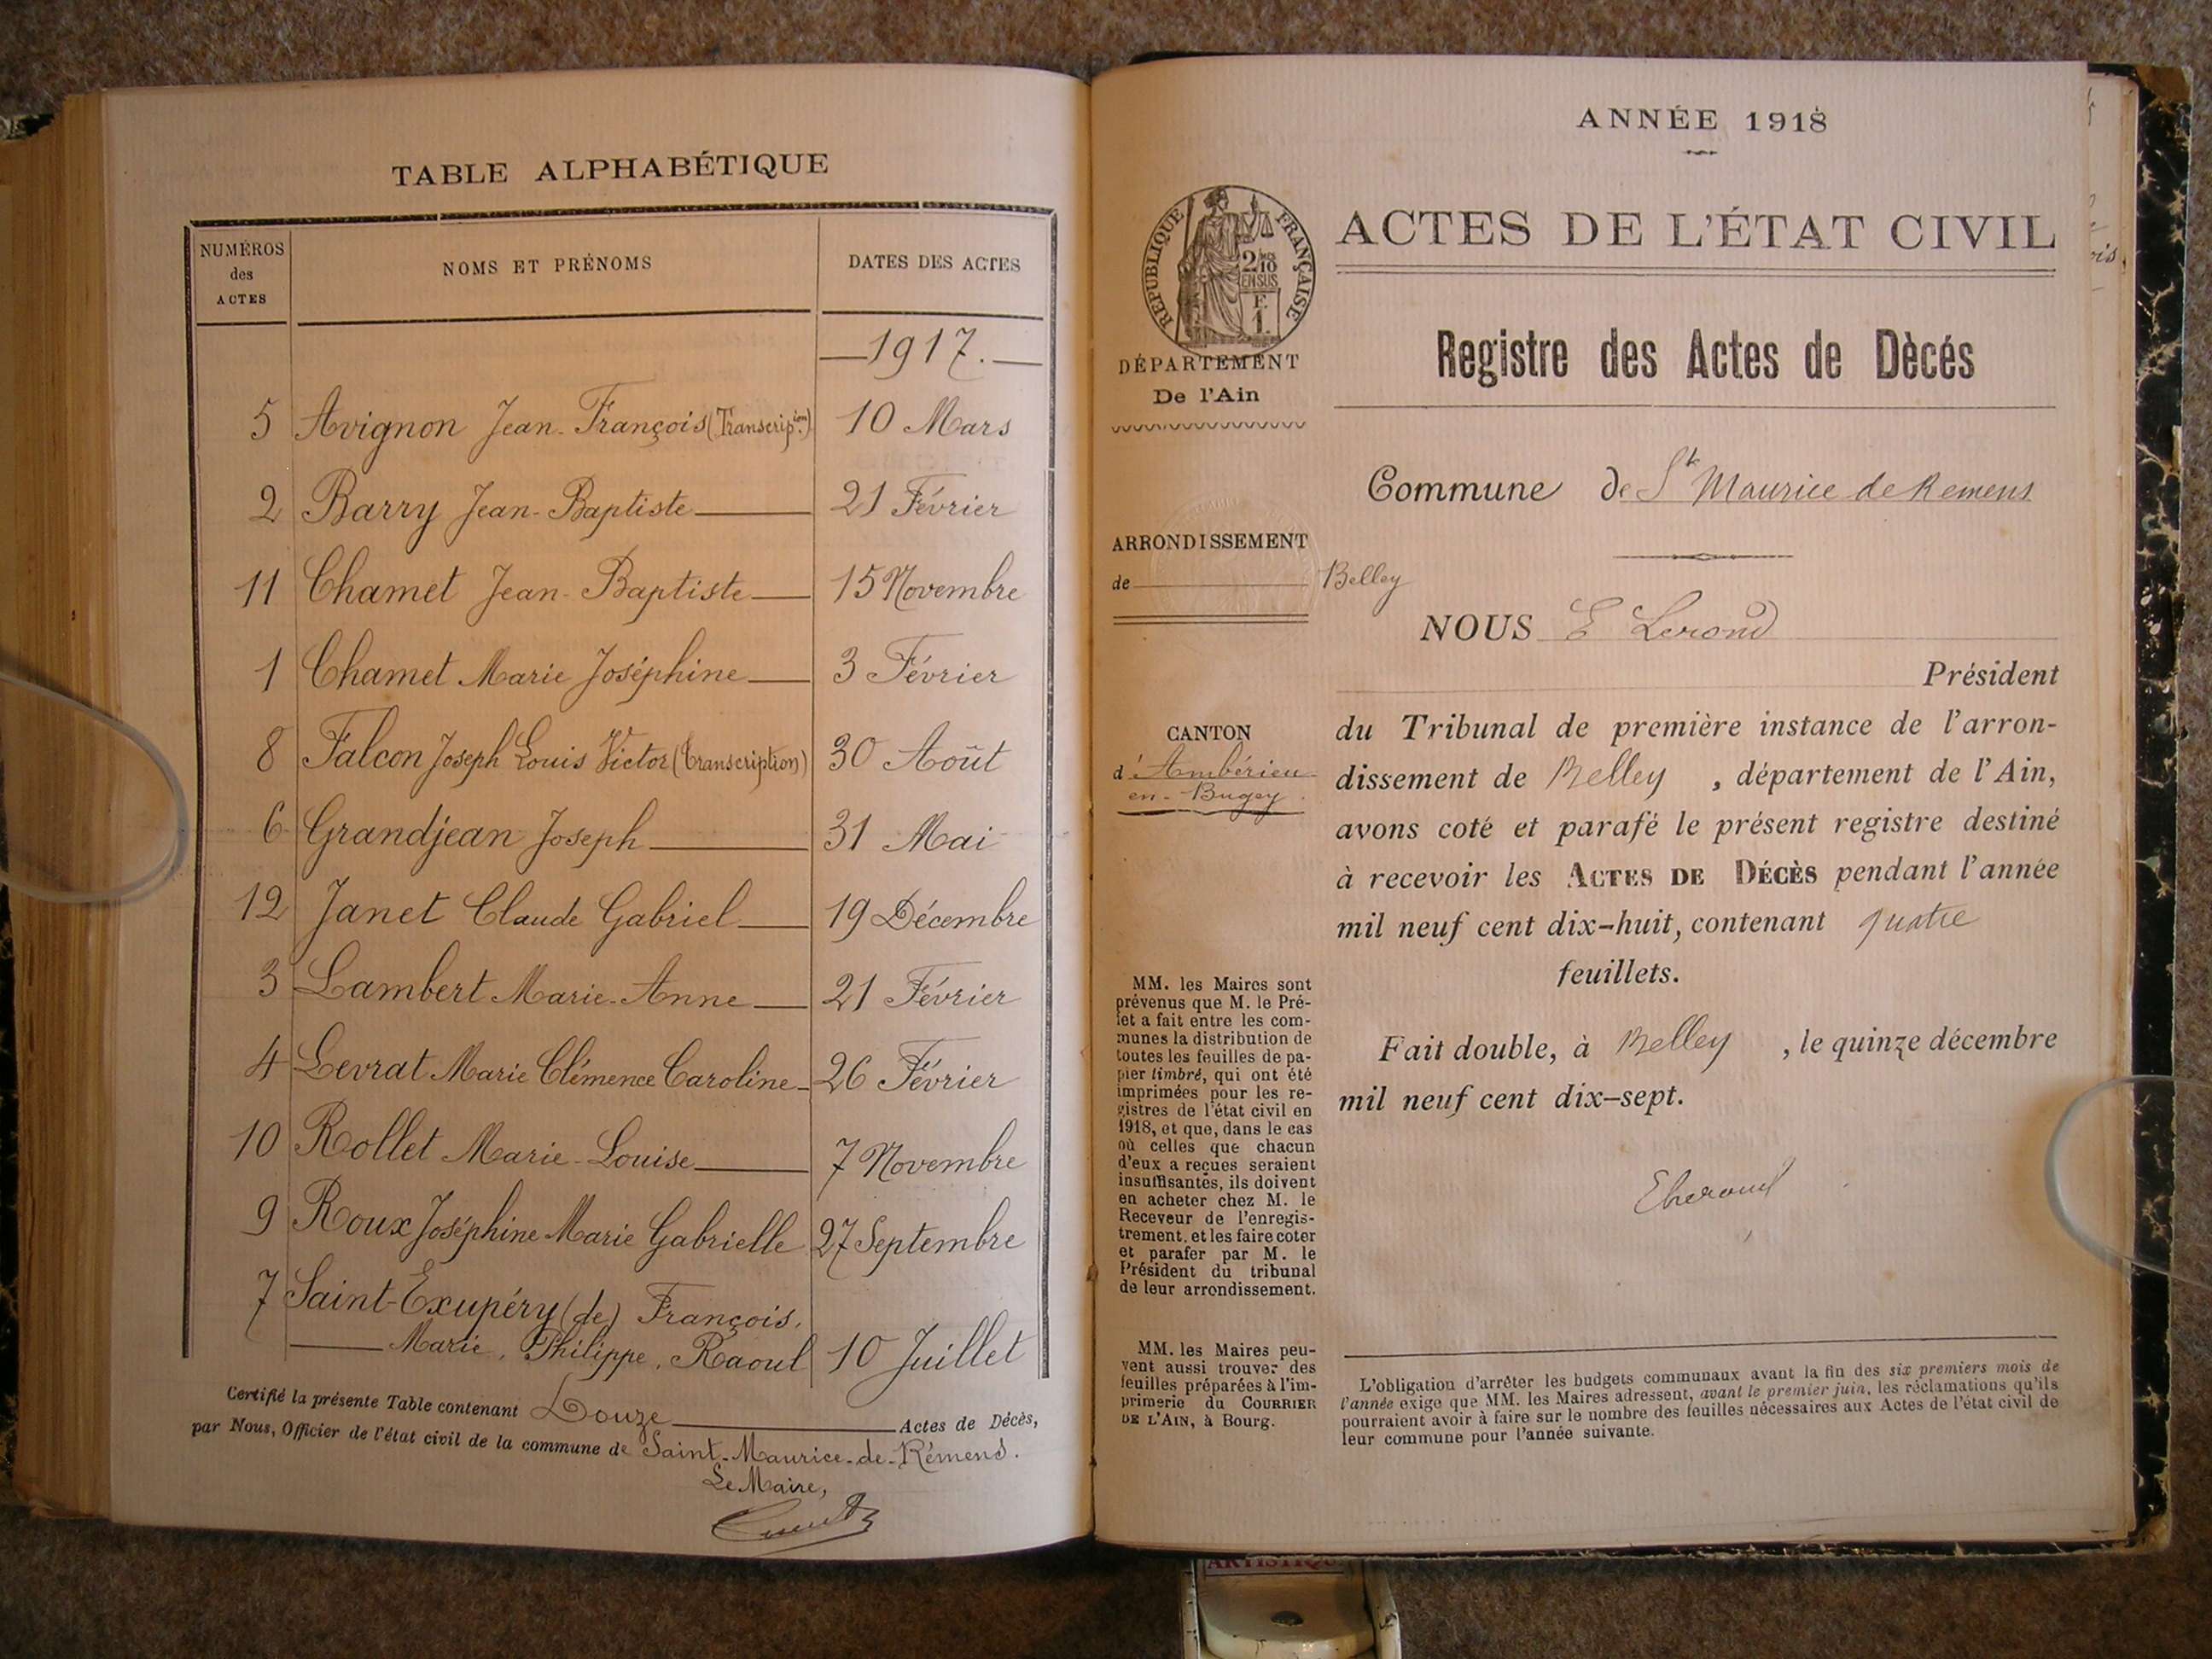 TABLE ALPHABÉTIQUE
NUMÉROS
des
ACTES
NOMS ET PRÉNOMS
DATES DES ACTES
1917.
5 Avignon Jean-François (Transcrip.ion) 10 Mars
2 Barry Jean-Baptiste 21 Février
11 Chamet Jean-Baptiste 15 Novembre
1 Chamet Marie Joséphine 3 Février
8 Falcon Joseph Louis Victor (transcription) 30 Août
6 Grandjean Joseph 31 Mai
12 Janet Claude Gabriel 19 Décembre
3 Lambert Marie-Anne 21 Février
4 Levrat Marie Clémence Caroline 26 Février
10 Rollet Marie-Louise 7 Novembre
9 Roux Joséphine Marie Gabrielle 27 Septembre
7 Saint-Exupéry (de) François,
Marie, Philippe, Raoul 10 Juillet
Certifié la présente Table contenant Douze Actes de Décès,
par Nous, Officier de l'état civil de la commune de Saint-Maurice-de-Rémens.
Le Maire,
ANNÉE 1918
RÉPUBLIQUE FRANÇAISE
2/10
EN SUS
F.
1.
ACTES DE L'ÉTAT CIVIL
Registre des Actes de Dècés
DÉPARTEMENT
De l'Ain
Commune de St Maurice de Remens
ARRONDISSEMENT
de Belley
NOUS E Lerond
Président
CANTON
d'Ambérieu
en-Bugey.
du Tribunal de première instance de l'arron-
dissement de Belley , département de l'Ain,
avons coté et parafé le présent registre destiné
à recevoir les ACTES DE DÉCÈS pendant l'année
mil neuf cent dix-huit, contenant quatre
feuillets.
Fait double, à Belley , le quinze décembre
mil neuf cent dix-sept.
MM. les Maires sont
prévenus que M. le Pré-
fet a fait entre les com-
munes la distribution de
toutes les feuilles de pa-
pier timbré, qui ont été
imprimées pour les re-
gistres de l'état civil en
1918, et que, dans le cas
où celles que chacun
d'eux a reçues seraient
insuffisantes, ils doivent
en acheter chez M. le
Receveur de l'enregis-
trement, et les faire coter
et parafer par M. le
Président du tribunal
de leur arrondissement.
MM. les Maires peu-
vent aussi trouver des
feuilles préparées à l'im-
primerie du COURRIER
DE L'AIN, à Bourg.
L'obligation d'arrêter les budgets communaux avant la fin des six premiers mois de
l'année exige que MM. les Maires adressent, avant le premier juin, les réclamations qu'ils
pourraient avoir à faire sur le nombre des feuilles nécessaires aux Actes de l'état civil de
leur commune pour l'année suivante.